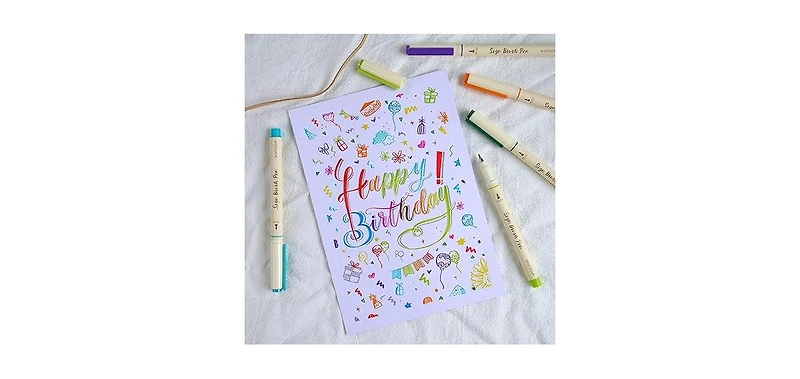 Sign Brush Pen
Happy!
Birthday
Sign Brush Pen
Sign Brush Pen
Sign
Sign Brush Pen